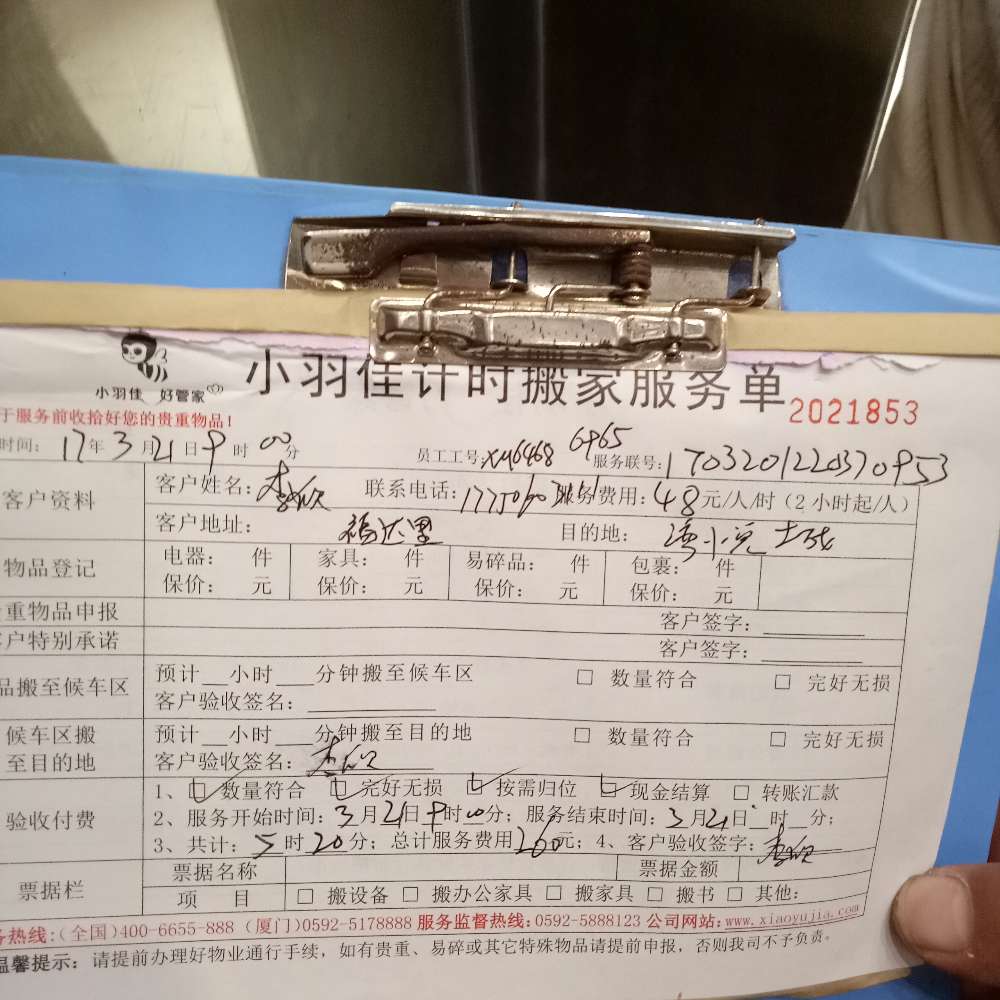 小羽佳 好管家
小羽佳计时搬家服务单 2021853
于服务前收拾好您的贵重物品!
时间: 17年3月21日9时00分 员工工号:xm6468 6965 服务联号:1703201220370953
客户资料 客户姓名: 联系电话: 服务费用:48元/人/时(2小时起/人)
客户地址: 福达里 目的地:
物品登记 电器: 件 家具: 件 易碎品: 件 包裹: 件
保价: 元 保价: 元 保价: 元 保价: 元
重物品申报 客户签字:
户特别承诺 客户签字:
品搬至候车区 预计__小时___分钟搬至候车区 □ 数量符合 □ 完好无损
客户验收签名:
候车区搬至目的地 预计__小时___分钟搬至目的地 □ 数量符合 □ 完好无损
客户验收签名:
验收付费 1、☑数量符合 ☑完好无损 ☑按需归位 ☑现金结算 □ 转账汇款
2、服务开始时间:3月21日9时00分; 服务结束时间:3月21日_时_分;
3、共计:5时20分; 总计服务费用260元; 4、客户验收签字:
票据栏 票据名称 票据金额
项 目 □ 搬设备 □ 搬办公家具 □ 搬家具 □ 搬书 □ 其他:
务热线:(全国)400-6655-888 (厦门)0592-5178888 服务监督热线:0592-5888123 公司网站:www.xiaoyujia.com
温馨提示: 请提前办理好物业通行手续, 如有贵重、易碎或其它特殊物品请提前申报, 否则我司不予负责。